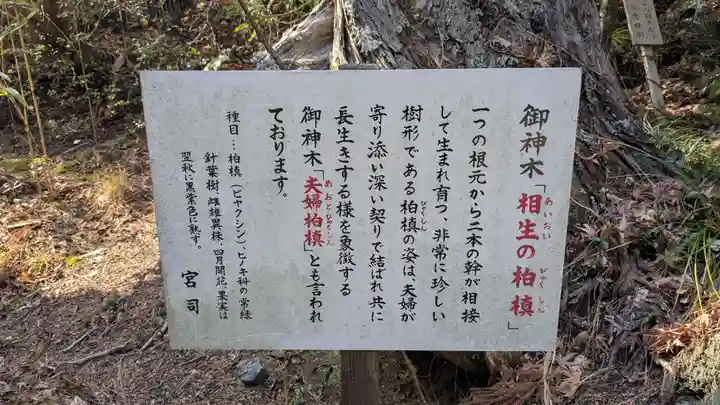 御神木「相生の柏槙」
あいおい
びゃくしん
一つの根元から二本の幹が相接
して生まれ育つ、非常に珍しい
樹形である柏槙の姿は、夫婦が
びゃくしん
寄り添い深い契りで結ばれ共に
長生きする様を象徴する
御神木「夫婦柏槙」とも言われ
めおとびゃくしん
ております。
種目…柏槙(ビヤクシン)、ヒノキ科の常緑
針葉樹、雌雄異株、四月開花、果実は
翌秋に黒紫色に熟す。
宮司